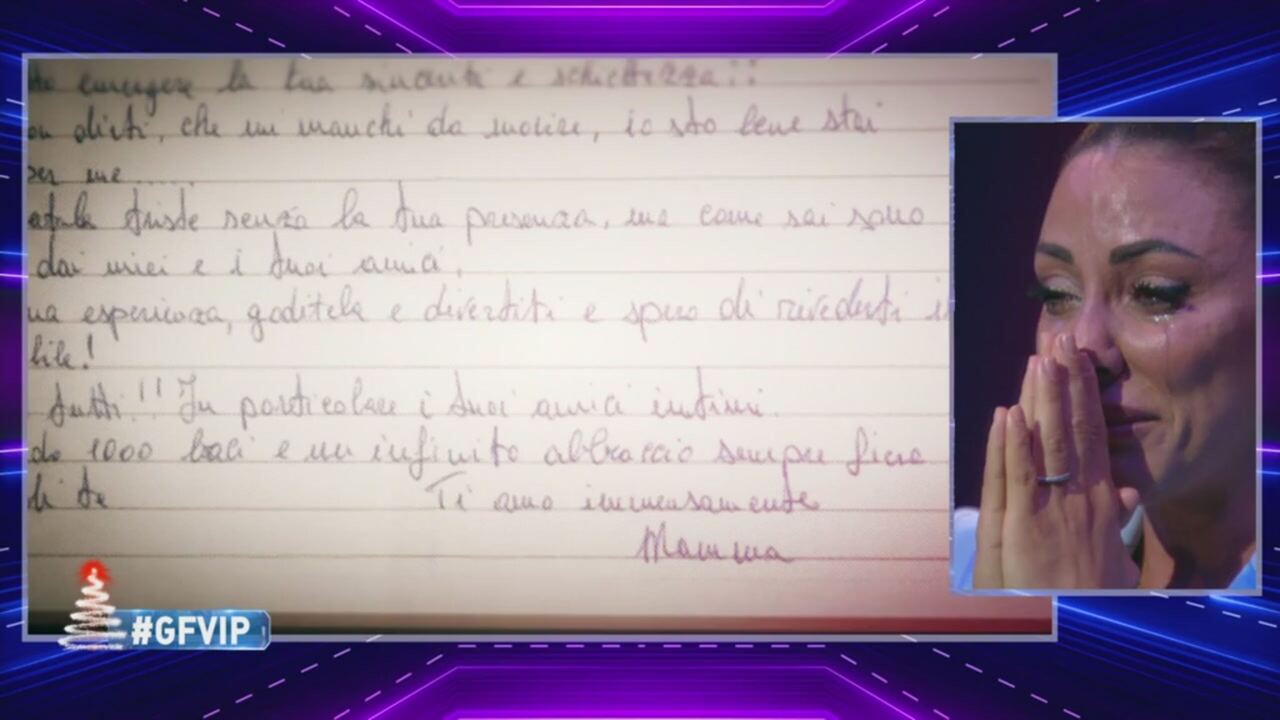 emergere la tua sincerità e schiettezza!!
dirti, che mi manchi da morire, io sto bene stai
per me.....
triste senza la tua presenza, ma come sai sono
dai miei e i tuoi amici,
esperienza, goditela e divertiti e spero di rivederti
bile!
tutti!! In particolare i tuoi amici intimi.
do 1000 baci e un infinito abbraccio sempre fiera
di te
Ti amo immensamente
Mamma
#GFVIP